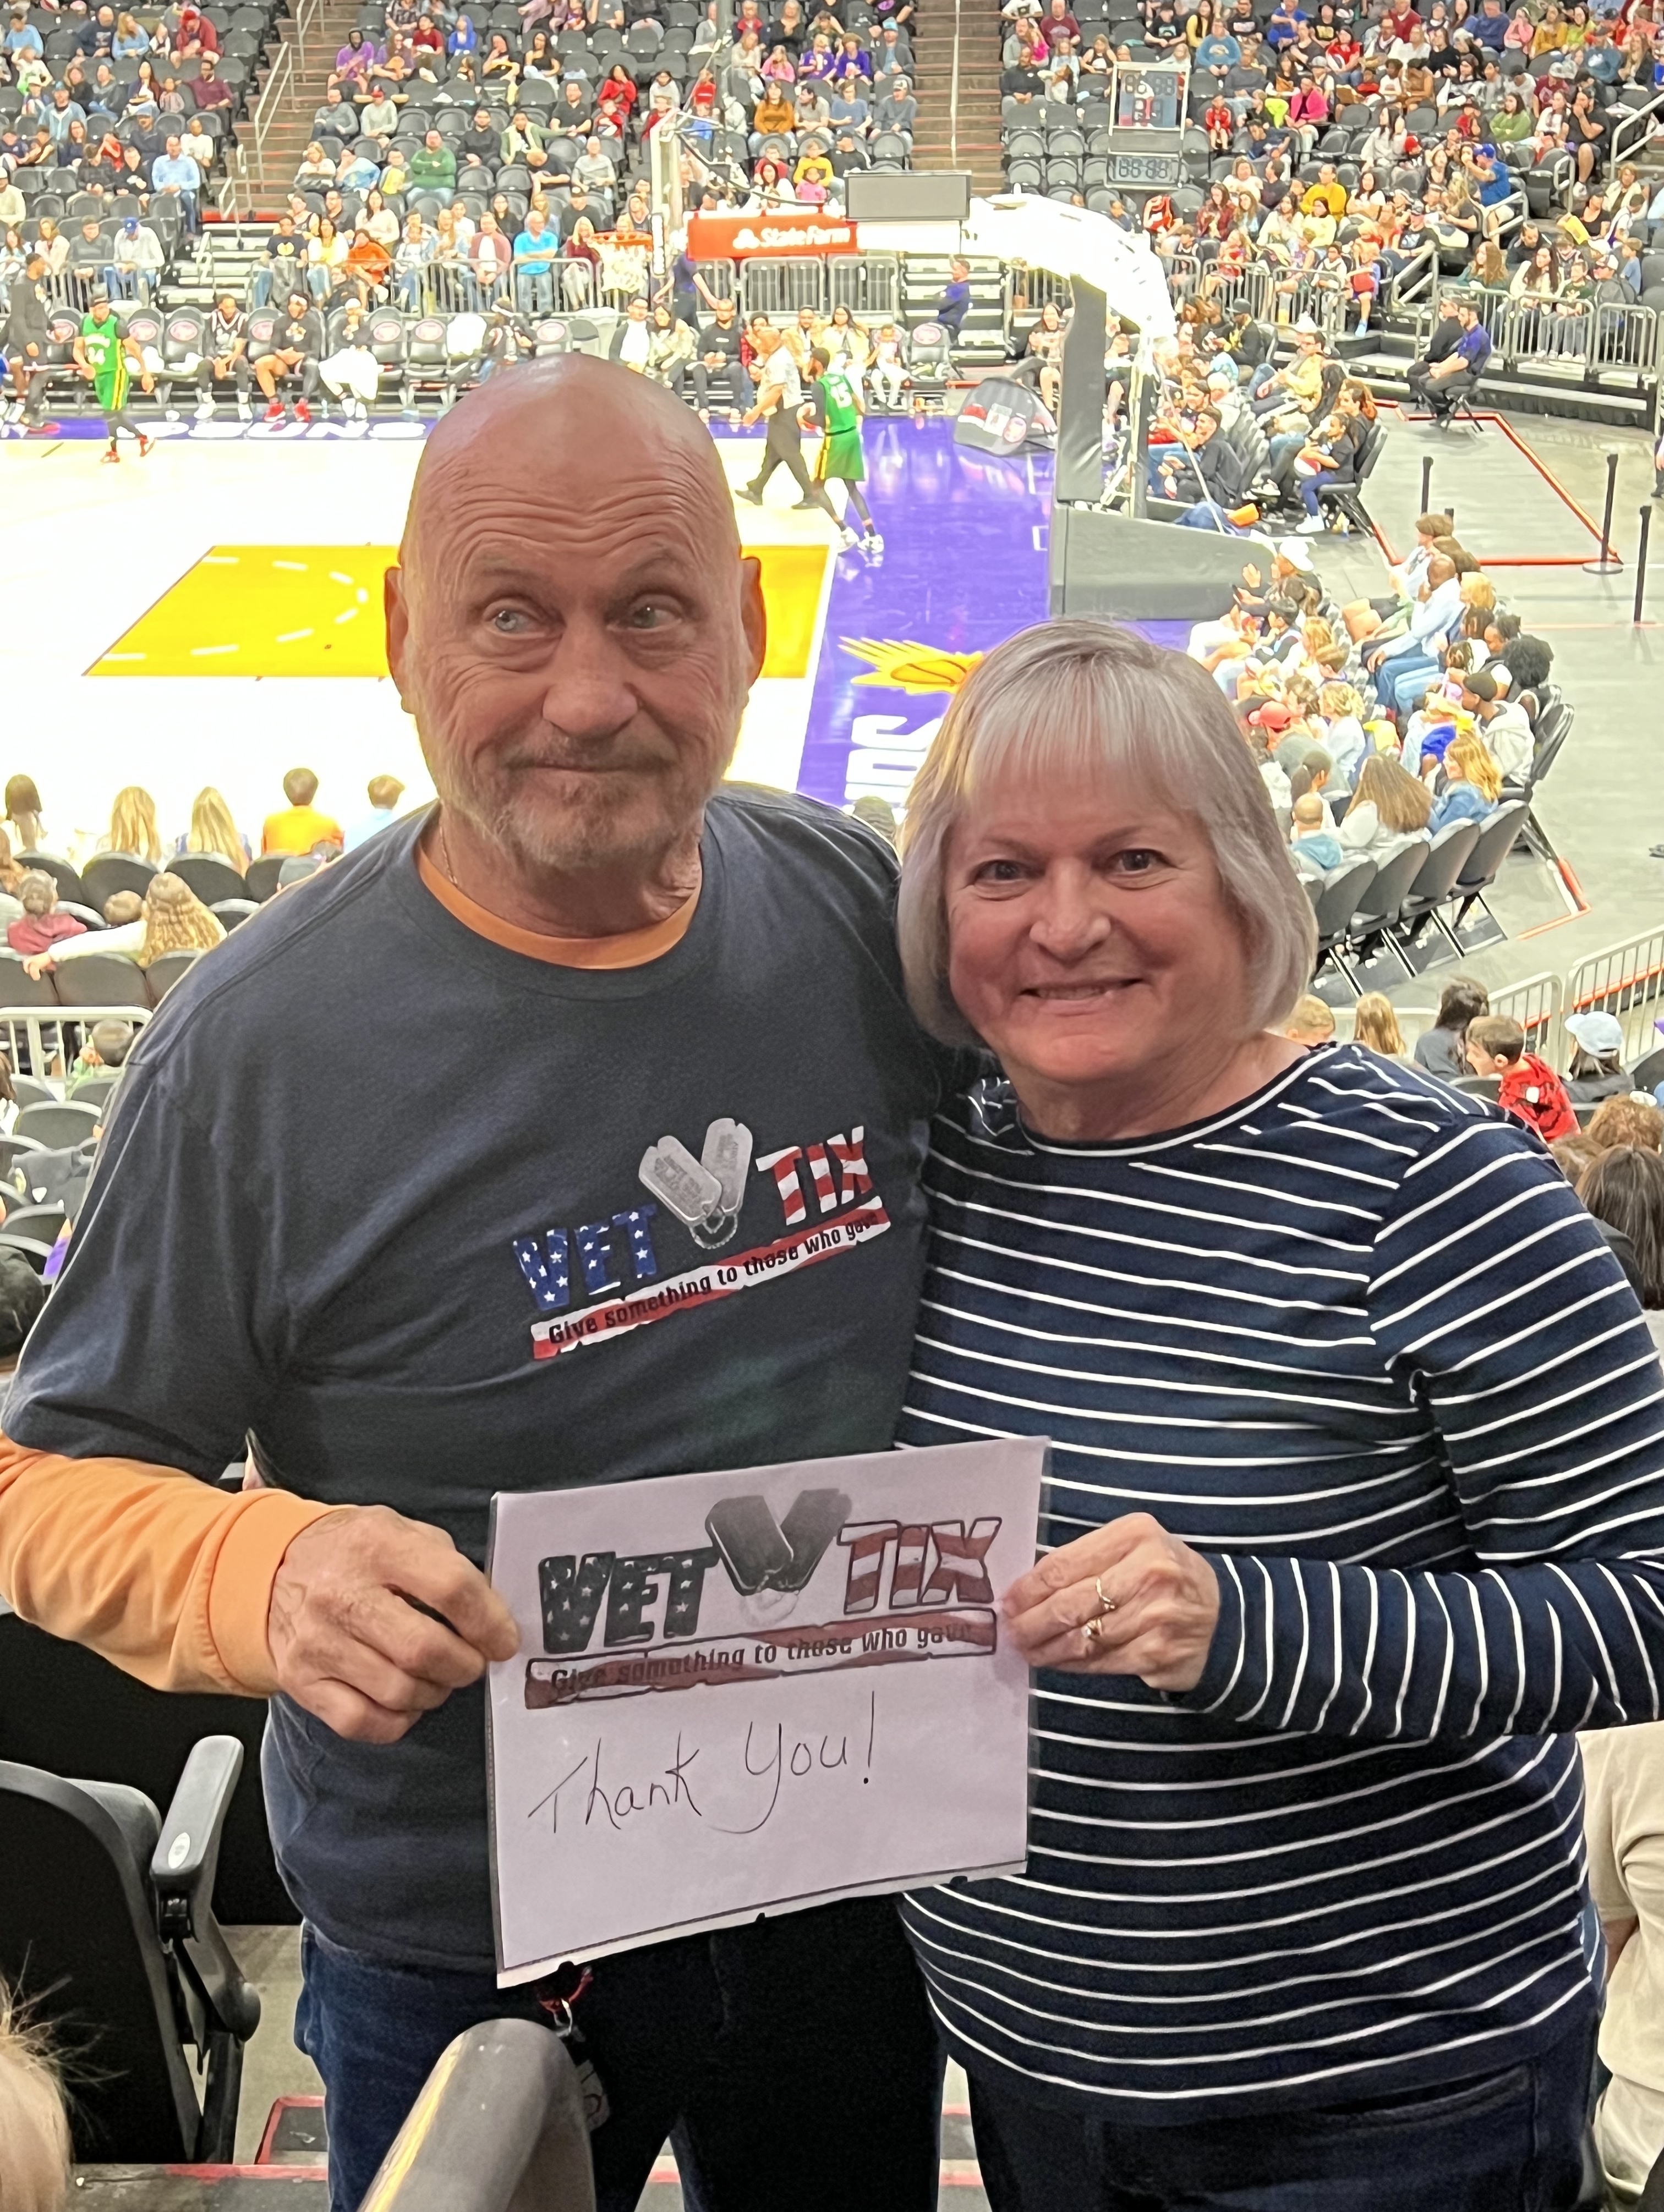 StateFarm
SUNS
VET TIX
Give something to those who gave
VET TIX
Give something to those who gave
Thank You!